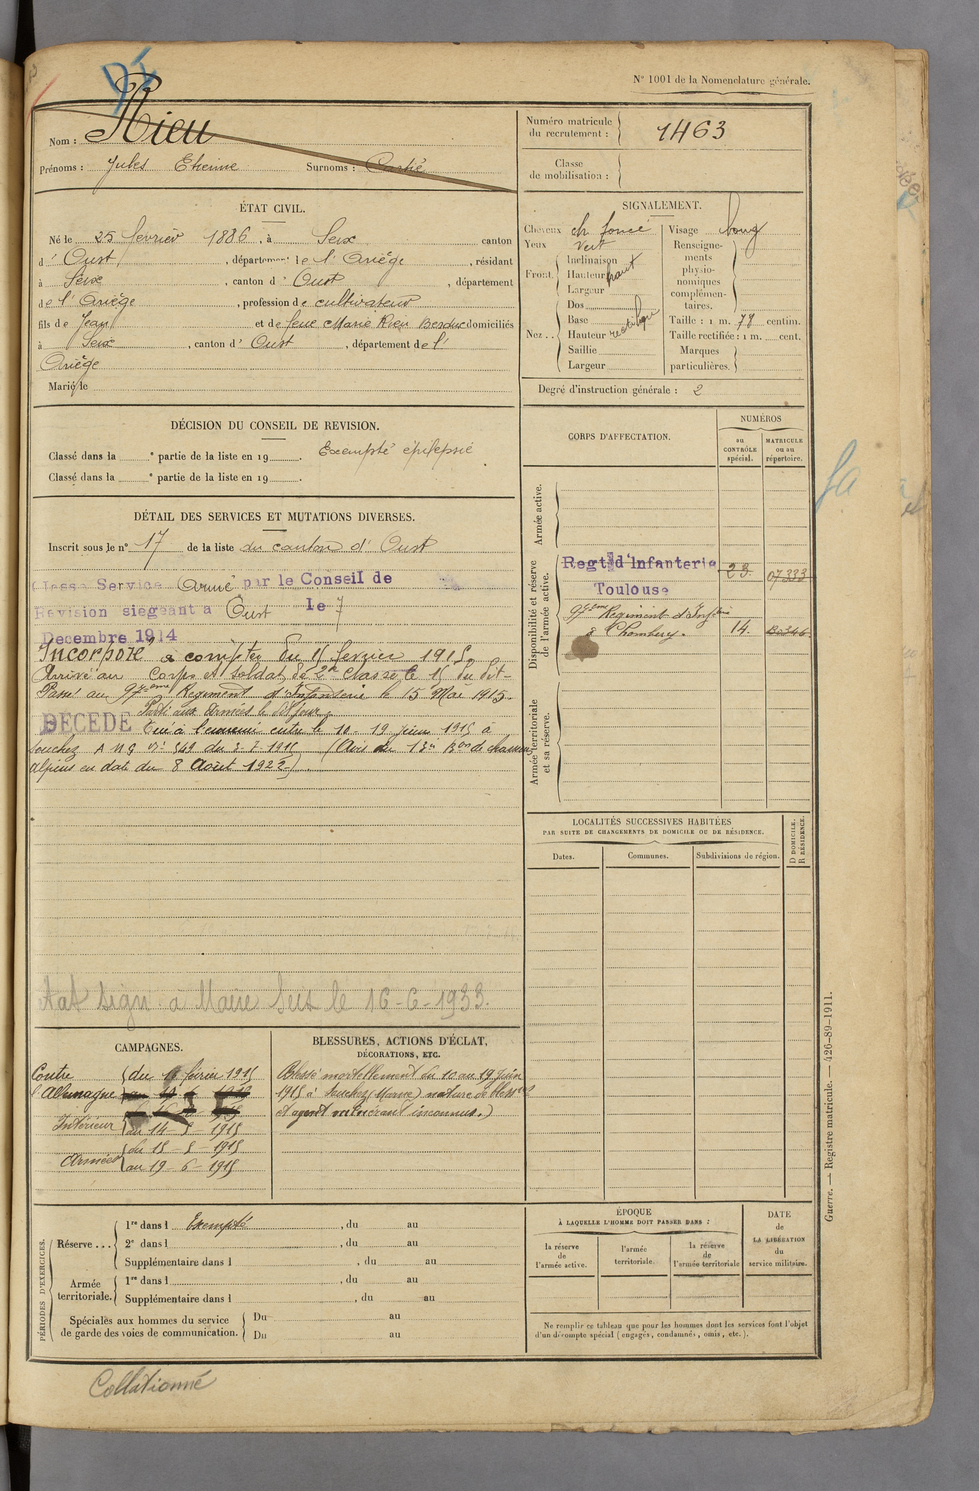 N° 1001 de la Nomenclature générale.
Nom : Rieu
Prénoms : Jules Etienne Surnoms :
Numéro matricule du recrutement : 1463
Classe de mobilisation :
ÉTAT CIVIL.
Né le 25 fevrier 1886, à Seix canton
d'Oust, département de l'Ariège, résidant
à Seix, canton d'Oust, département
de l'Ariège, profession de cultivateur
fils de Jean et de feue Marie Rieu Berduc domiciliés
à Seix, canton d'Oust, département de l'
Ariège
Marié le
SIGNALEMENT.
Cheveux ch foncé
Yeux vert
Front. Inclinaison
Hauteur haut
Largeur
Nez.. Dos
Base
Hauteur rectiligne
Saillie
Largeur
Visage long
Renseignements physionomiques complémentaires.
Taille : 1 m. 78 centim.
Taille rectifiée : 1 m. cent.
Marques particulières.
Degré d'instruction générale : 2
DÉCISION DU CONSEIL DE REVISION.
Classé dans la e partie de la liste en 19 . Exempté épilepsie
Classé dans la e partie de la liste en 19 .
DÉTAIL DES SERVICES ET MUTATIONS DIVERSES.
Inscrit sous le n° 17 de la liste du canton d'Oust
Classé Service Armé par le Conseil de
Revision siegeant a Oust le 7
Decembre 1914
Incorporé à compter du 15 fevrier 1915.
Arrivé au Corps et soldat de 2e classe le 15 du dit.
Passé au 97ème Regiment d'Infanterie le 15 Mai 1915.
Parti aux armées le dit jour.
DÉCÉDÉ Tué à l'ennemi entre le 10 - 19 juin 1915 à
Souchez A M G N° 549 du 2-7-1915 (Avis du 13e Bon de chasseurs
Alpins en date du 8 Août 1922).
CORPS D'AFFECTATION.
NUMÉROS
au CONTRÔLE spécial.
MATRICULE ou au répertoire.
Armée active.
Disponibilité et réserve de l'armée active.
Regt d'Infanterie 23. 07333
Toulouse
97ème Regiment d'Inftrie
à Chambery. 14.
Armée territoriale et sa réserve.
LOCALITÉS SUCCESSIVES HABITÉES
PAR SUITE DE CHANGEMENTS DE DOMICILE OU DE RÉSIDENCE.
Dates.
Communes.
Subdivisions de région.
D DOMICILE. R RÉSIDENCE.
état sign. à Maire Seix le 16-6-1933.
CAMPAGNES.
Contre du février 1915
l'Allemagne
Intérieur au 14 - 5 - 1915
Armées du 15 - 5 - 1915
au 19 - 6 - 1915
BLESSURES, ACTIONS D'ÉCLAT, DÉCORATIONS, ETC.
Blessé mortellement du 10 au 19 juin
1915 à Souchez (Marne) nature de bless
et agent vulnérant inconnus.)
PÉRIODES D'EXERCICES.
Réserve... 1re dans l Exempté, du au
2e dans l , du au
Supplémentaire dans l , du au
Armée territoriale. 1re dans l , du au
Supplémentaire dans l , du au
Spéciales aux hommes du service de garde des voies de communication. Du au
Du au
ÉPOQUE
À LAQUELLE L'HOMME DOIT PASSER DANS :
la réserve de l'armée active.
l'armée territoriale.
la réserve de l'armée territoriale
DATE de LA LIBÉRATION du service militaire.
Ne remplir ce tableau que pour les hommes dont les services font l'objet
d'un décompte spécial (engagés, condamnés, omis, etc.).
Guerre. — Registre matricule. — 426-89-1911.
Collationné